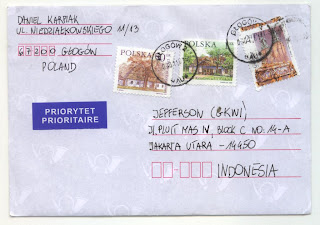 DANIEL KARNIAK
UL. NIEDZIAŁKOWSKIEGO 11/13
67200 GŁOGÓW
POLAND
POLSKA
POLSKA
GŁOGÓW 1
PRIORYTET
PRIORITAIRE
JEPPERSON (BKWI)
Jl. PLUIT MAS IV, BLOCK C NO. 14-A
JAKARTA UTARA - 14450
INDONESIA